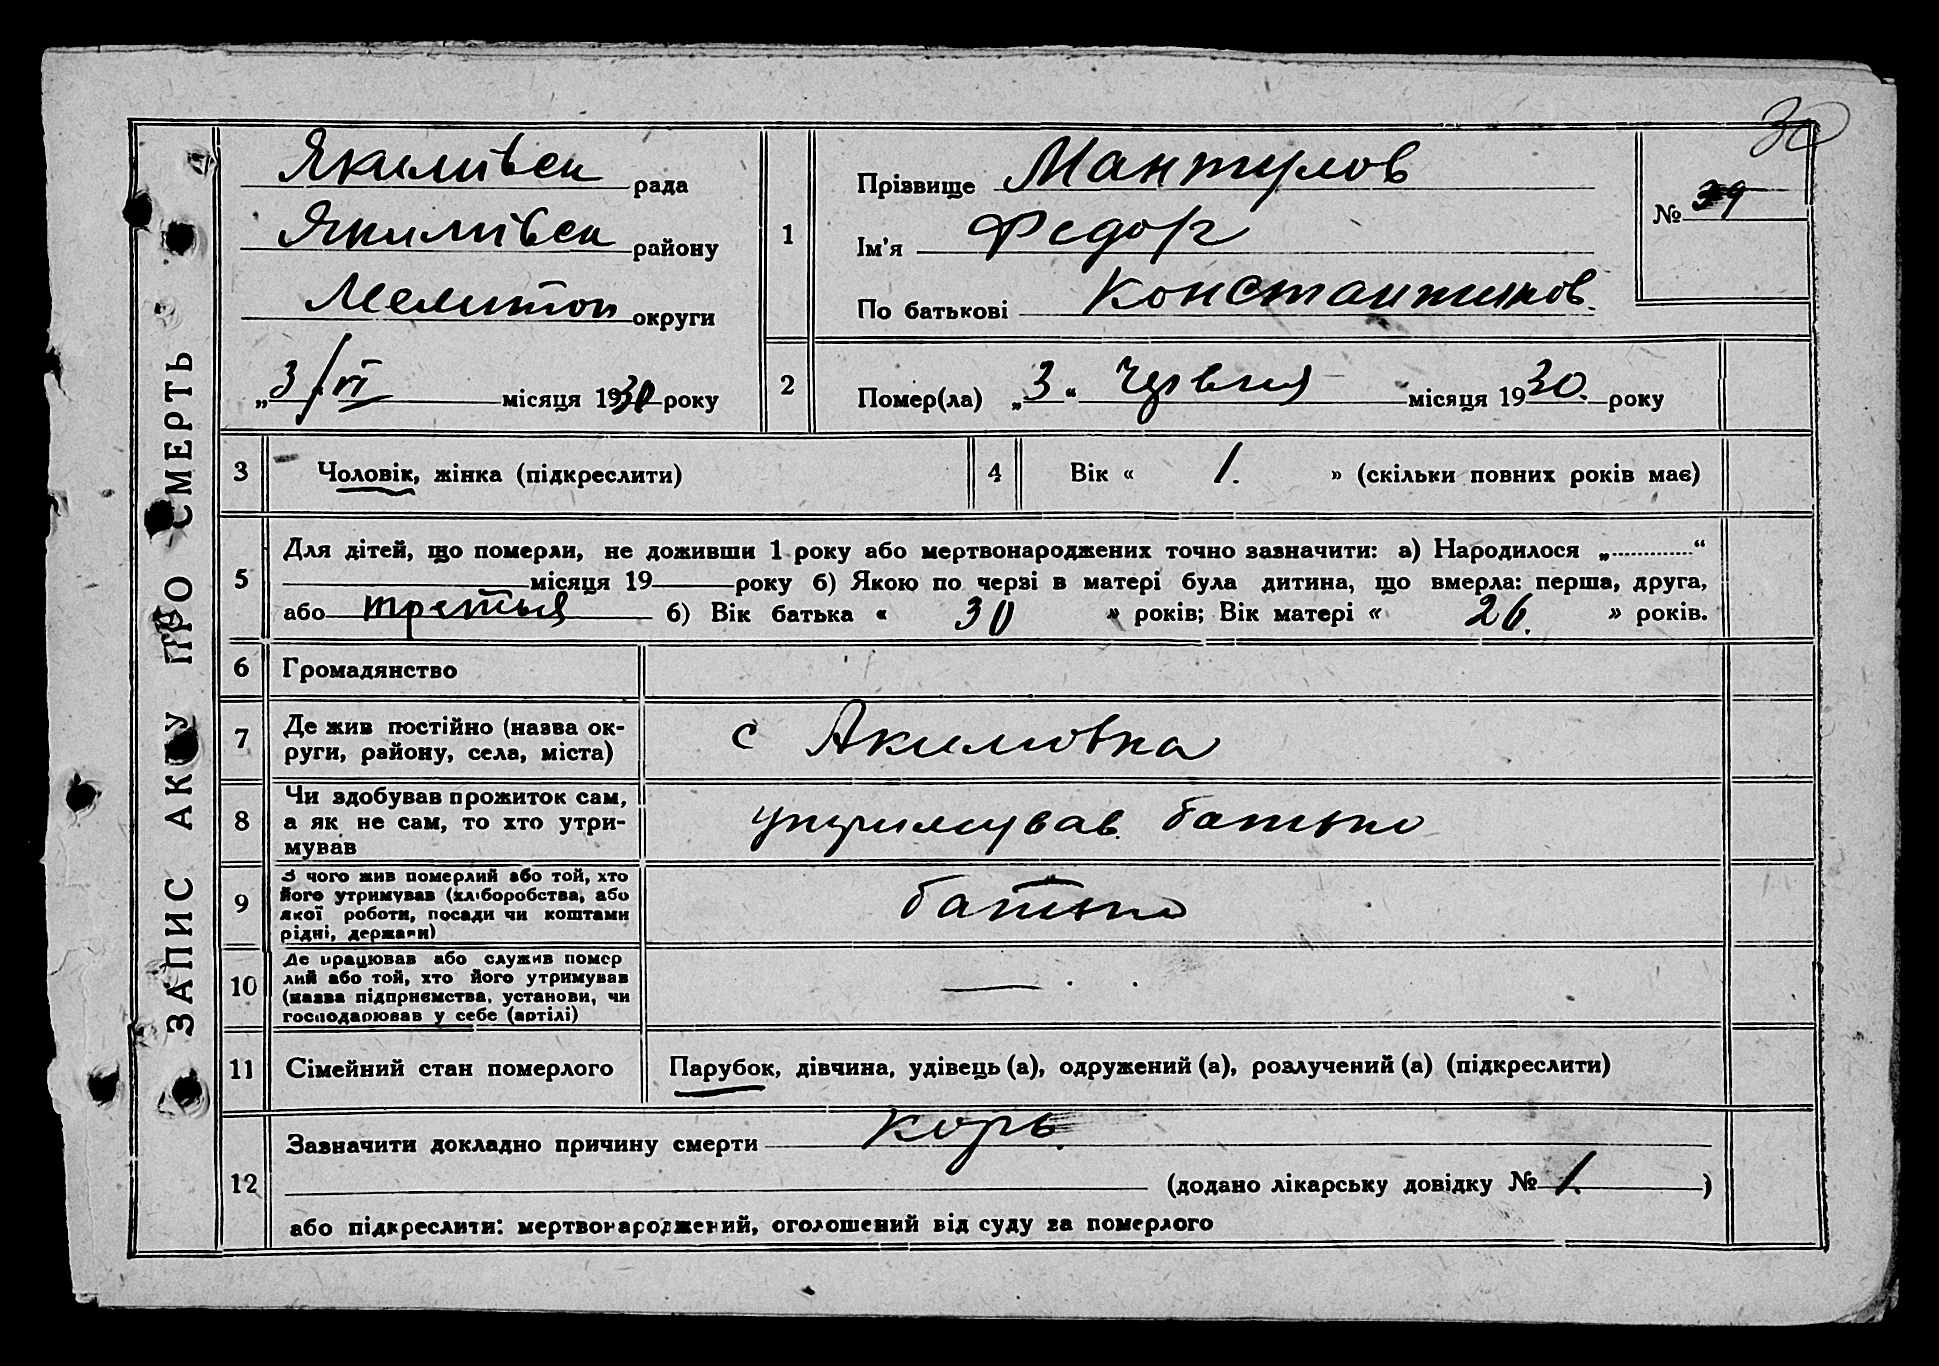 30
ЗАПИС АКТУ ПРО СМЕРТЬ
Якимівськ рада
Якимівськ району
Мелитоп округи
„3/VI місяця 1930 року
1
Прізвище Мантулов
Ім'я Федор
По батькові Константинов.
№ 39
2
Помер(ла) „3“ Червня місяця 1930. року
3 Чоловік, жінка (підкреслити)
4 Вік « 1. » (скільки повних років має)
5
Для дітей, що померли, не доживши 1 року або мертвонароджених точно зазначити: а) Народилося „.............“
місяця 19 року б) Якою по черзі в матері була дитина, що вмерла: перша, друга,
або третья б) Вік батька « 30 » років; Вік матері « 26. » років.
6 Громадянство
7
Де жив постійно (назва ок-
руги, району, села, міста)
с Акимовка
8
Чи здобував прожиток сам,
а як не сам, то хто утри-
мував
утримував батько
9
З чого жив померлий або той, хто
його утримував (хліборобства, або
якої роботи, посади чи коштами
рідні, держави)
батько
10
Де працював або служив помер
лий або той, хто його утримував
(назва підприємства, установи, чи
господарював у себе (артілі)
— . .
11 Сімейний стан померлого
Парубок, дівчина, удівець (а), одружений (а), розлучений (а) (підкреслити)
12
Зазначити докладно причину смерти корь.
(додано лікарську довідку № 1. )
або підкреслити: мертвонароджений, оголошений від суду за померлого